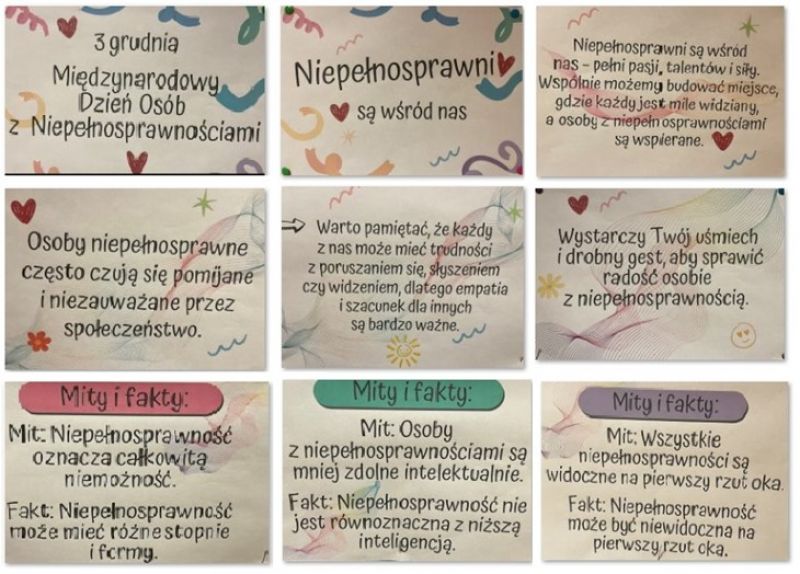 3 grudnia
Międzynarodowy
Dzień Osób
z Niepełnosprawnościami
Niepełnosprawni
są wśród nas
Niepełnosprawni są wśród
nas – pełni pasji, talentów i siły.
Wspólnie możemy budować miejsce,
gdzie każdy jest mile widziany,
a osoby z niepełnosprawnościami
są wspierane.
Osoby niepełnosprawne
często czują się pomijane
i niezauważane przez
społeczeństwo.
Warto pamiętać, że każdy
z nas może mieć trudności
z poruszaniem się, słyszeniem
czy widzeniem, dlatego empatia
i szacunek dla innych
są bardzo ważne.
Wystarczy Twój uśmiech
i drobny gest, aby sprawić
radość osobie
z niepełnosprawnością.
Mity i fakty:
Mit: Niepełnosprawność
oznacza całkowitą
niemożność.
Fakt: Niepełnosprawność
może mieć różne stopnie
i formy.
Mity i fakty:
Mit: Osoby
z niepełnosprawnościami są
mniej zdolne intelektualnie.
Fakt: Niepełnosprawność nie
jest równoznaczna z niższą
inteligencją.
Mity i fakty:
Mit: Wszystkie
niepełnosprawności są
widoczne na pierwszy rzut oka.
Fakt: Niepełnosprawność
może być niewidoczna na
pierwszy rzut oka.